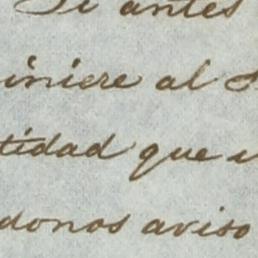 Si antes
iniere al
tidad que
donos aviso